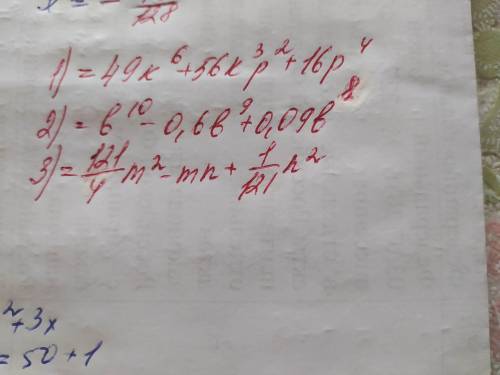 128
1) = 49k⁶ + 56k³p² + 16p⁴
2) = b¹⁰ - 0,6b⁹ + 0,09b⁸
3) = 121/4 m² - mn + 1/121 n²
² + 3x
= 50 + 1